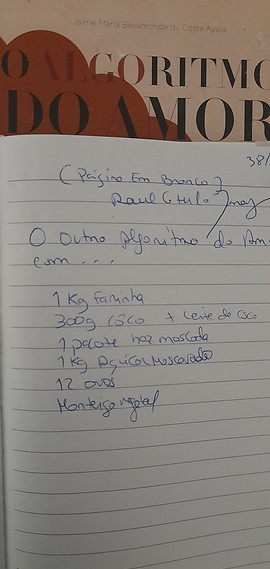 Jaime Maria
da Costa Ayala
O ALGORITMO
DO AMOR
38/
(Página Em Branco)
Raul
O Outro Algoritmo do Am
com ...
1 Kg Farinha
300g Côco + Leite de Côco
1 pacote noz moscada
1 Kg Açúcar Mascavado
12 ovos
Manteiga vegetal